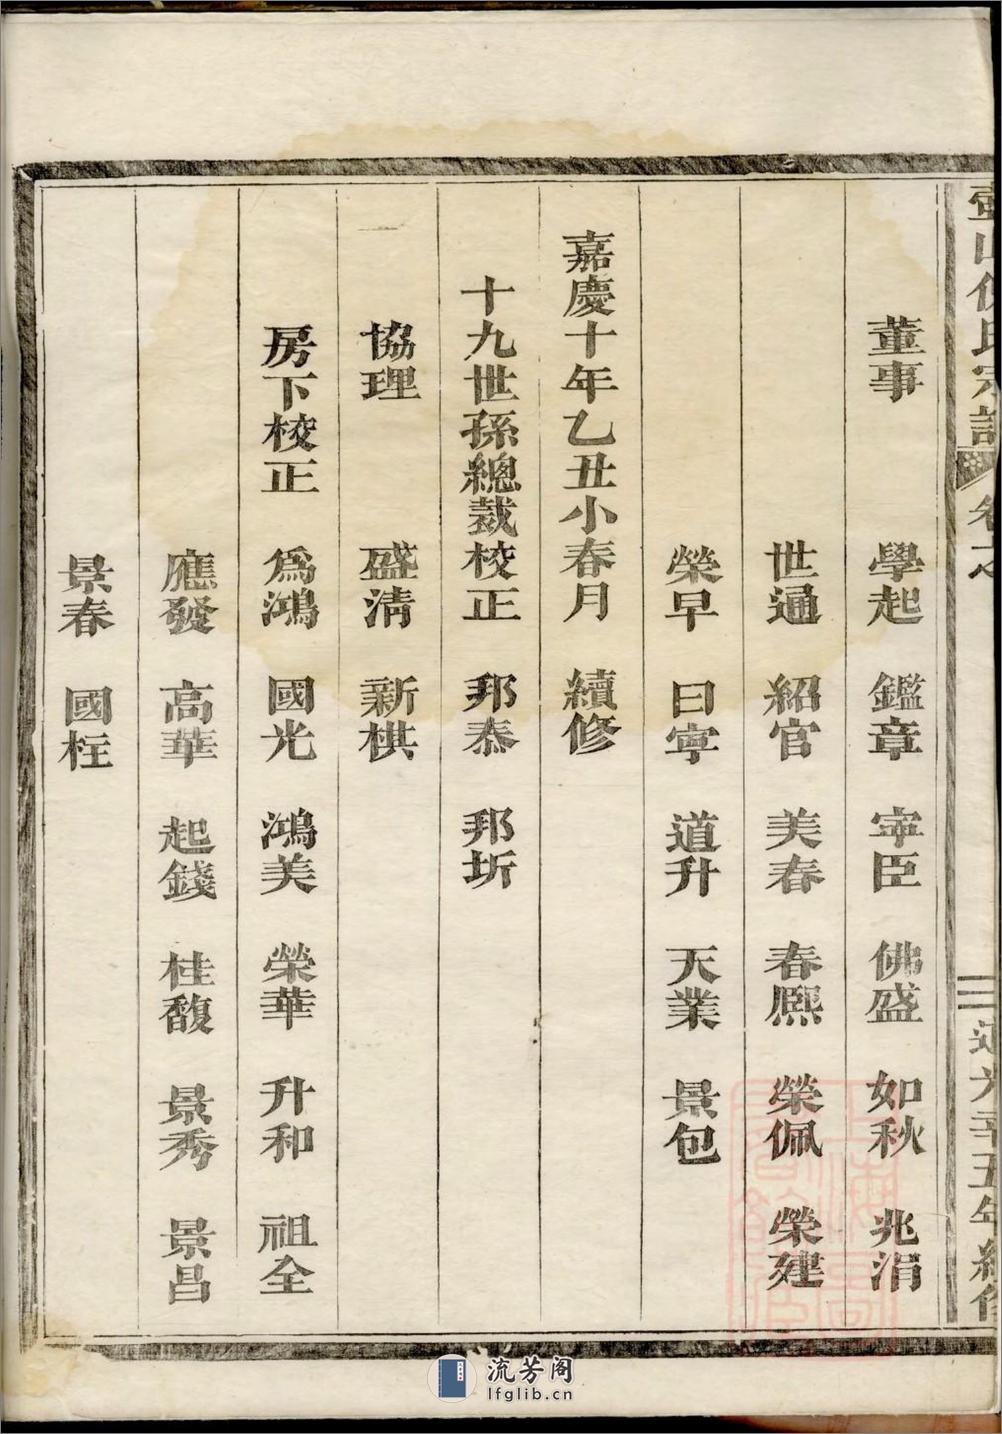 壺山倪氏宗譜 卷之 二 道光辛丑年續修
董事 學起 鑑章 寧臣 佛盛 如秋 兆涓
世通 紹官 美春 春熈 榮佩 榮建
榮早 曰寧 道升 天業 景包
嘉慶十年乙丑小春月 續修
十九世孫總裁校正 邦泰 邦圻
協理 盛清 新棋
房下校正 爲鴻 國光 鴻美 榮華 升和 祖全
應發 高華 起錢 桂馥 景秀 景昌
景春 國枉
流芳阁
lfglib.cn